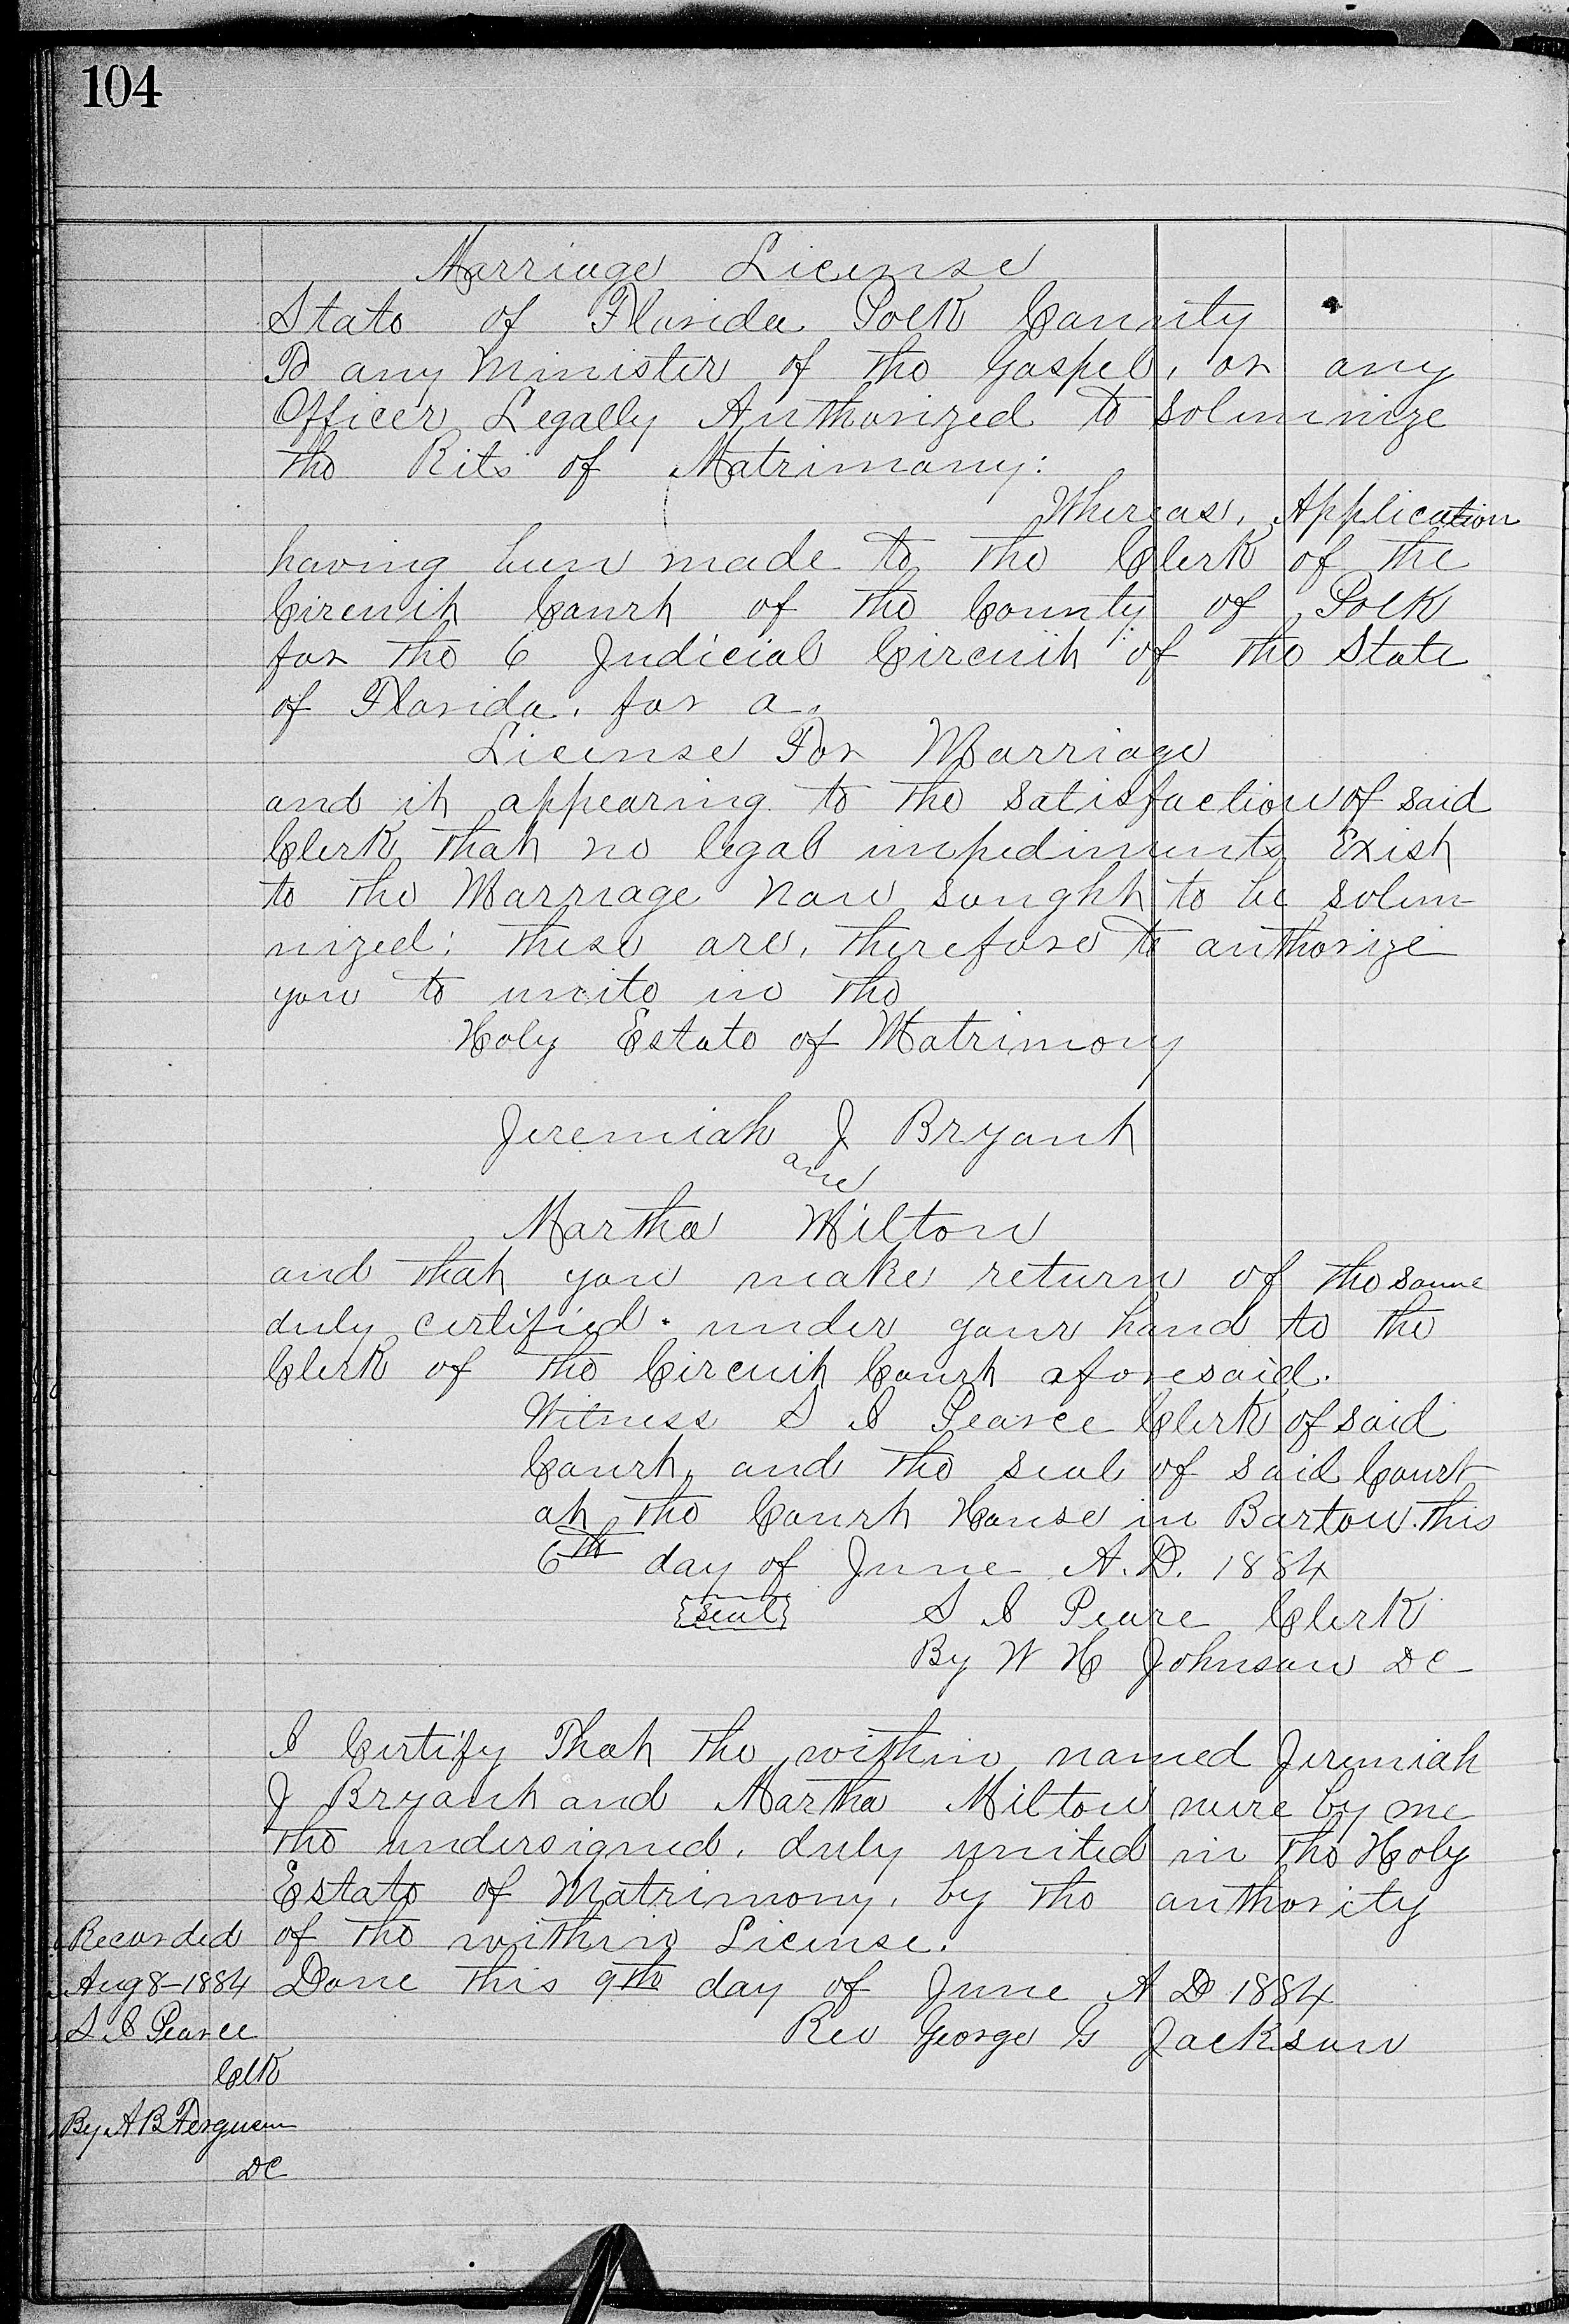 104
Marriage License
State of Florida Polk County
To any Minister of the Gospel, or any
Officer Legally Authorized to Solemnize
the Rits of Matrimony:
Whereas, Application
having been made to the Clerk of the
Circuit Court of the County of Polk
for the 6 Judicial Circuit of the State
of Florida, for a
License For Marriage
and it appearing to the satisfaction of said
Clerk that no legal impediments Exist
to the Marriage now sought to be solem-
nized: these are, therefore to authorize
you to unite in the
Holy Estate of Matrimony
Jeremiah J Bryant
and
Martha Milton
and that you make return of the same
duly certified. under your hand to the
Clerk of the Circuit Court aforesaid.
Witness S I Pearce Clerk of said
Court, and the seal of said Court
at the Court House in Bartow. this
6th day of June A.D. 1884
{seal} S I Pearce Clerk
By W H Johnson DC
I Certify That the within named Jeremiah
J Bryant and Martha Milton were by me
the undersigned, duly united in the Holy
Estate of Matrimony, by the authority
of the within License.
Done this 9th day of June A D 1884
Rev George G Jackson
Recorded
Aug 8-1884
S I Pearce
Clk
By A B Ferguson
DC